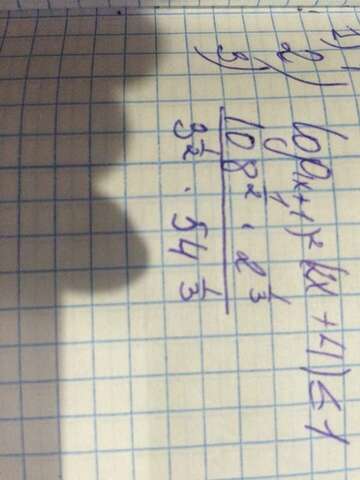 1)
2) log_{(x+1)^2} (x + 4) ≤ 1
3) \frac{108^{\frac{1}{2}} \cdot 2^{\frac{1}{3}}}{3^{\frac{1}{2}} \cdot 54^{\frac{1}{3}}}